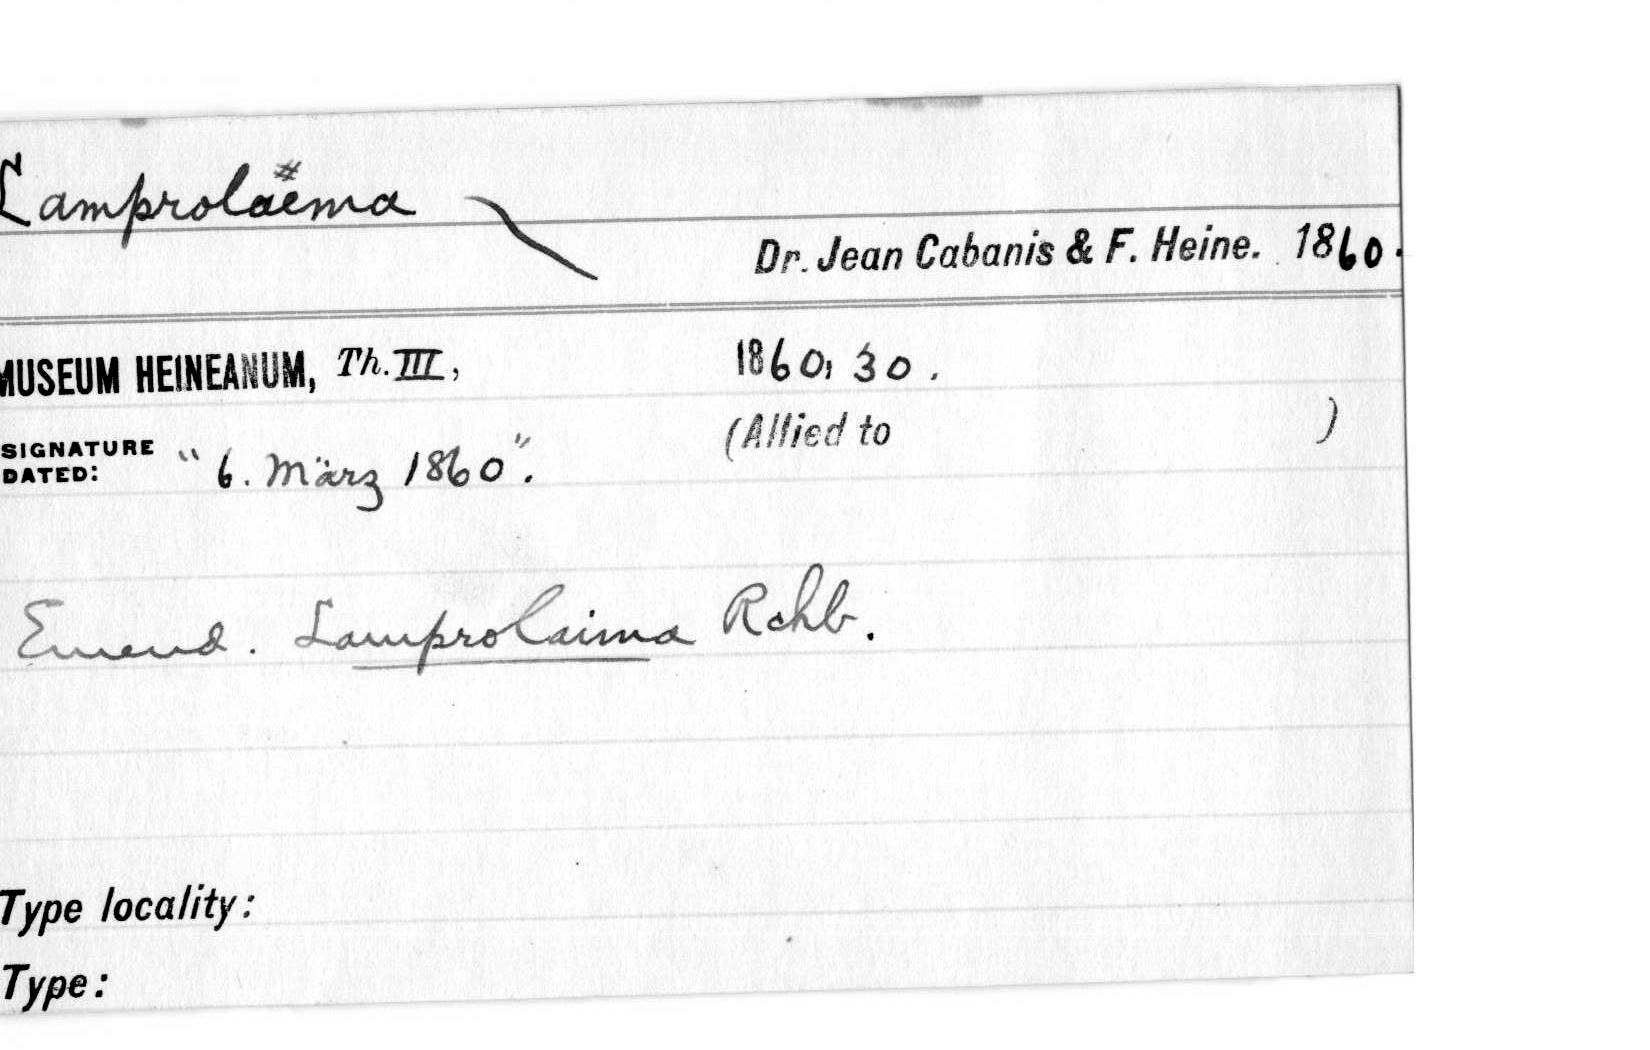 Lamprolaëma
Dr. Jean Cabanis & F. Heine. 1860.
MUSEUM HEINEANUM, Th. III, 1860, 30.
(Allied to )
SIGNATURE
DATED: "6. März 1860".
Emend. Lamprolaima Rchb.
Type locality:
Type: